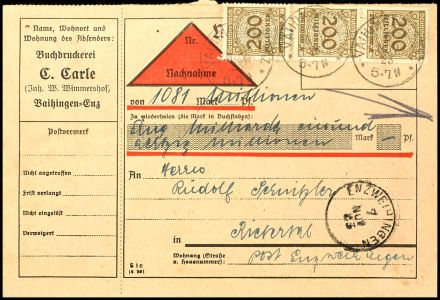 Name, Wohnort und
Wohnung des Absenders:
Buchdruckerei
C. Carle
(Inh. W. Wimmershof,
Vaihingen-Enz
Postvermerk
Nicht angetroffen
Frist verlangt
Nicht eingelöst
Verweigert
Nr.
Nachnahme
200
200
200
5-7 N
5-7 N
von 1081 Millionen
Mark
Pf.
Zu wiederholen (die Mark in Buchstaben):
Milliarde einund
Mark — Pf.
achtzig Millionen
An Herrn
Rudolf
ENZWEIHINGEN
7
NOV
in
Post Enzweihingen
Wohnung (Straße
u. Hausnummer):